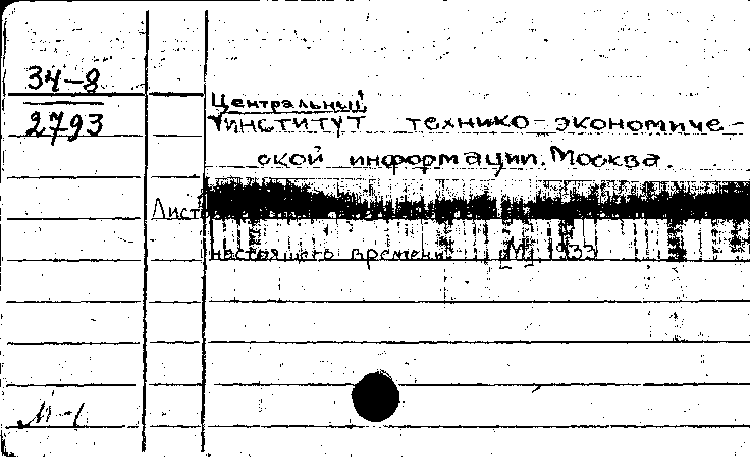 34-8
2793
Центральный
институт технико-экономиче-
ской информации. Москва.
Лист
настоящего времени. М. 1933
М-1